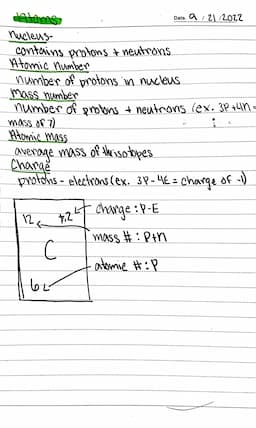 Atoms
Date 9 / 21 / 2022
nucleus-
contains protons + neutrons
Atomic Number
number of protons in nucleus
Mass number
number of protons + neutrons (ex. 3P+4n=
mass of 7)
Atomic Mass
average mass of isotopes
Charge
protons - electrons (ex. 3P-4E = charge of -1)
12
charge : P-E
C
mass # : P+n
6
atomic # : P